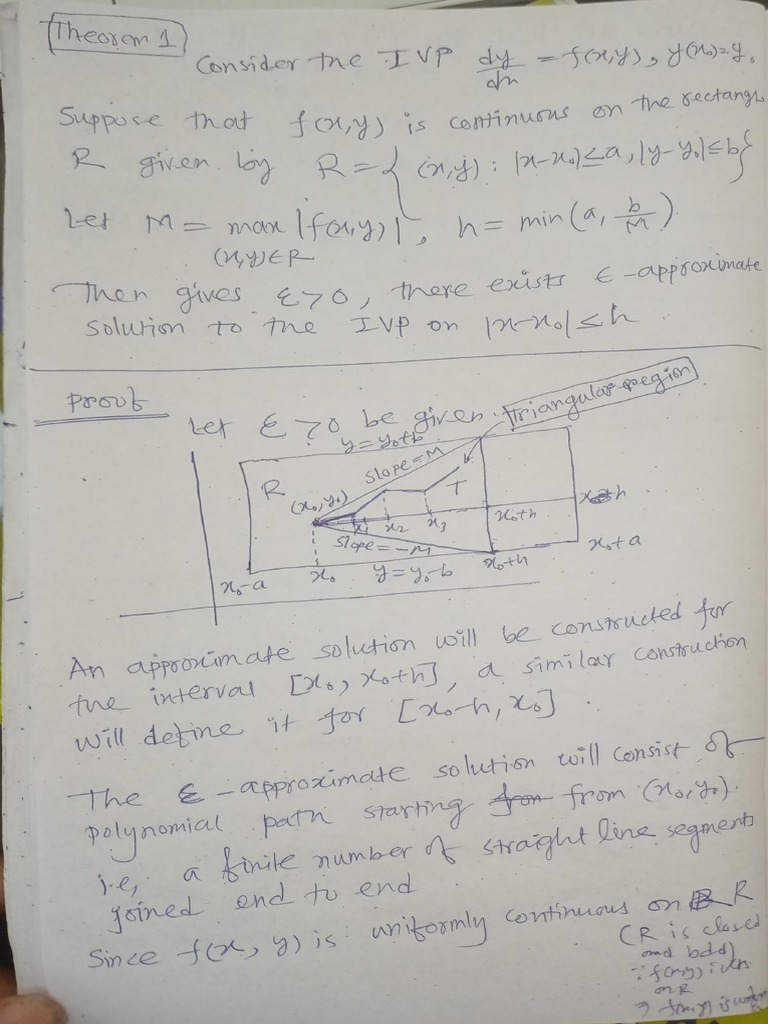 Theorem 1
Consider the IVP dy/dx = f(x,y), y(x₀)=y₀
Suppose that f(x,y) is continuous on the rectangle
R given by R = { (x,y) : |x-x₀|≤a, |y-y₀|≤b}
Let M = max |f(x,y)|, h = min(a, b/M).
(x,y)∈R
Then gives ε>0, there exists ε-approximate
solution to the IVP on |x-x₀|≤h.
Proof
Let ε>0 be given.
triangular region
y=y₀+b
slope=M
R
(x₀,y₀)
T
x₁ x₂ x₃ x₀+h
slope=-M
x₀-a x₀ y=y₀-b x₀+h x₀+a
An approximate solution will be constructed for
the interval [x₀, x₀+h], a similar construction
will define it for [x₀-h, x₀].
The ε-approximate solution will consist of
polynomial path starting from (x₀,y₀).
i.e, a finite number of straight line segments
joined end to end
Since f(x,y) is uniformly continuous on R
(R is closed
and bdd)
∵ f(x,y) is cts
on R
⇒ f(x,y) is